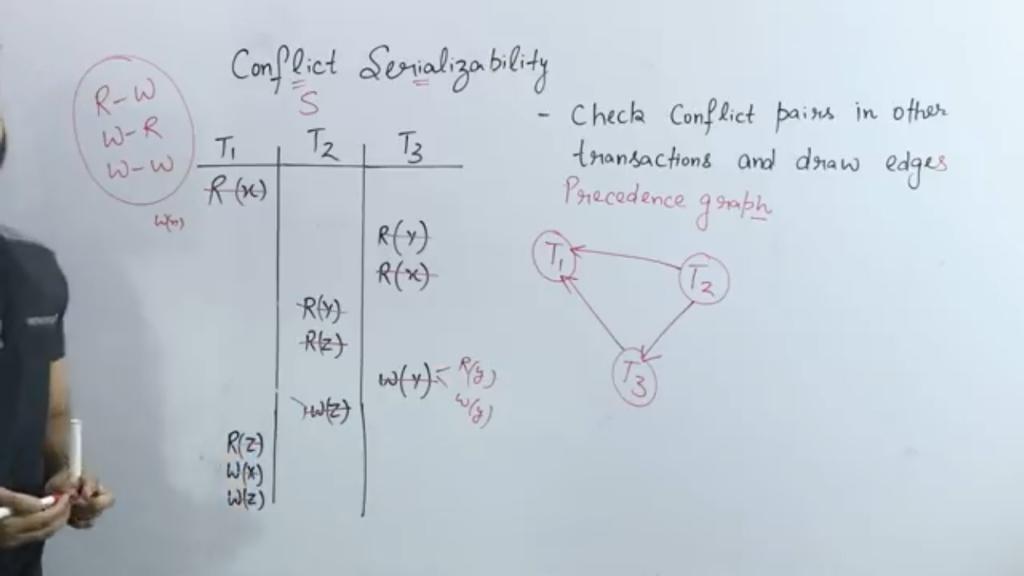 Conflict Serializability
S
R-W
W-R
W-W
W(x)
T1 T2 T3
R(x)
R(y)
R(x)
R(y)
R(z)
W(y) R(y)
W(y)
W(z)
R(z)
W(x)
W(z)
- Check Conflict pairs in other
transactions and draw edges
Precedence graph
T1
T2
T3